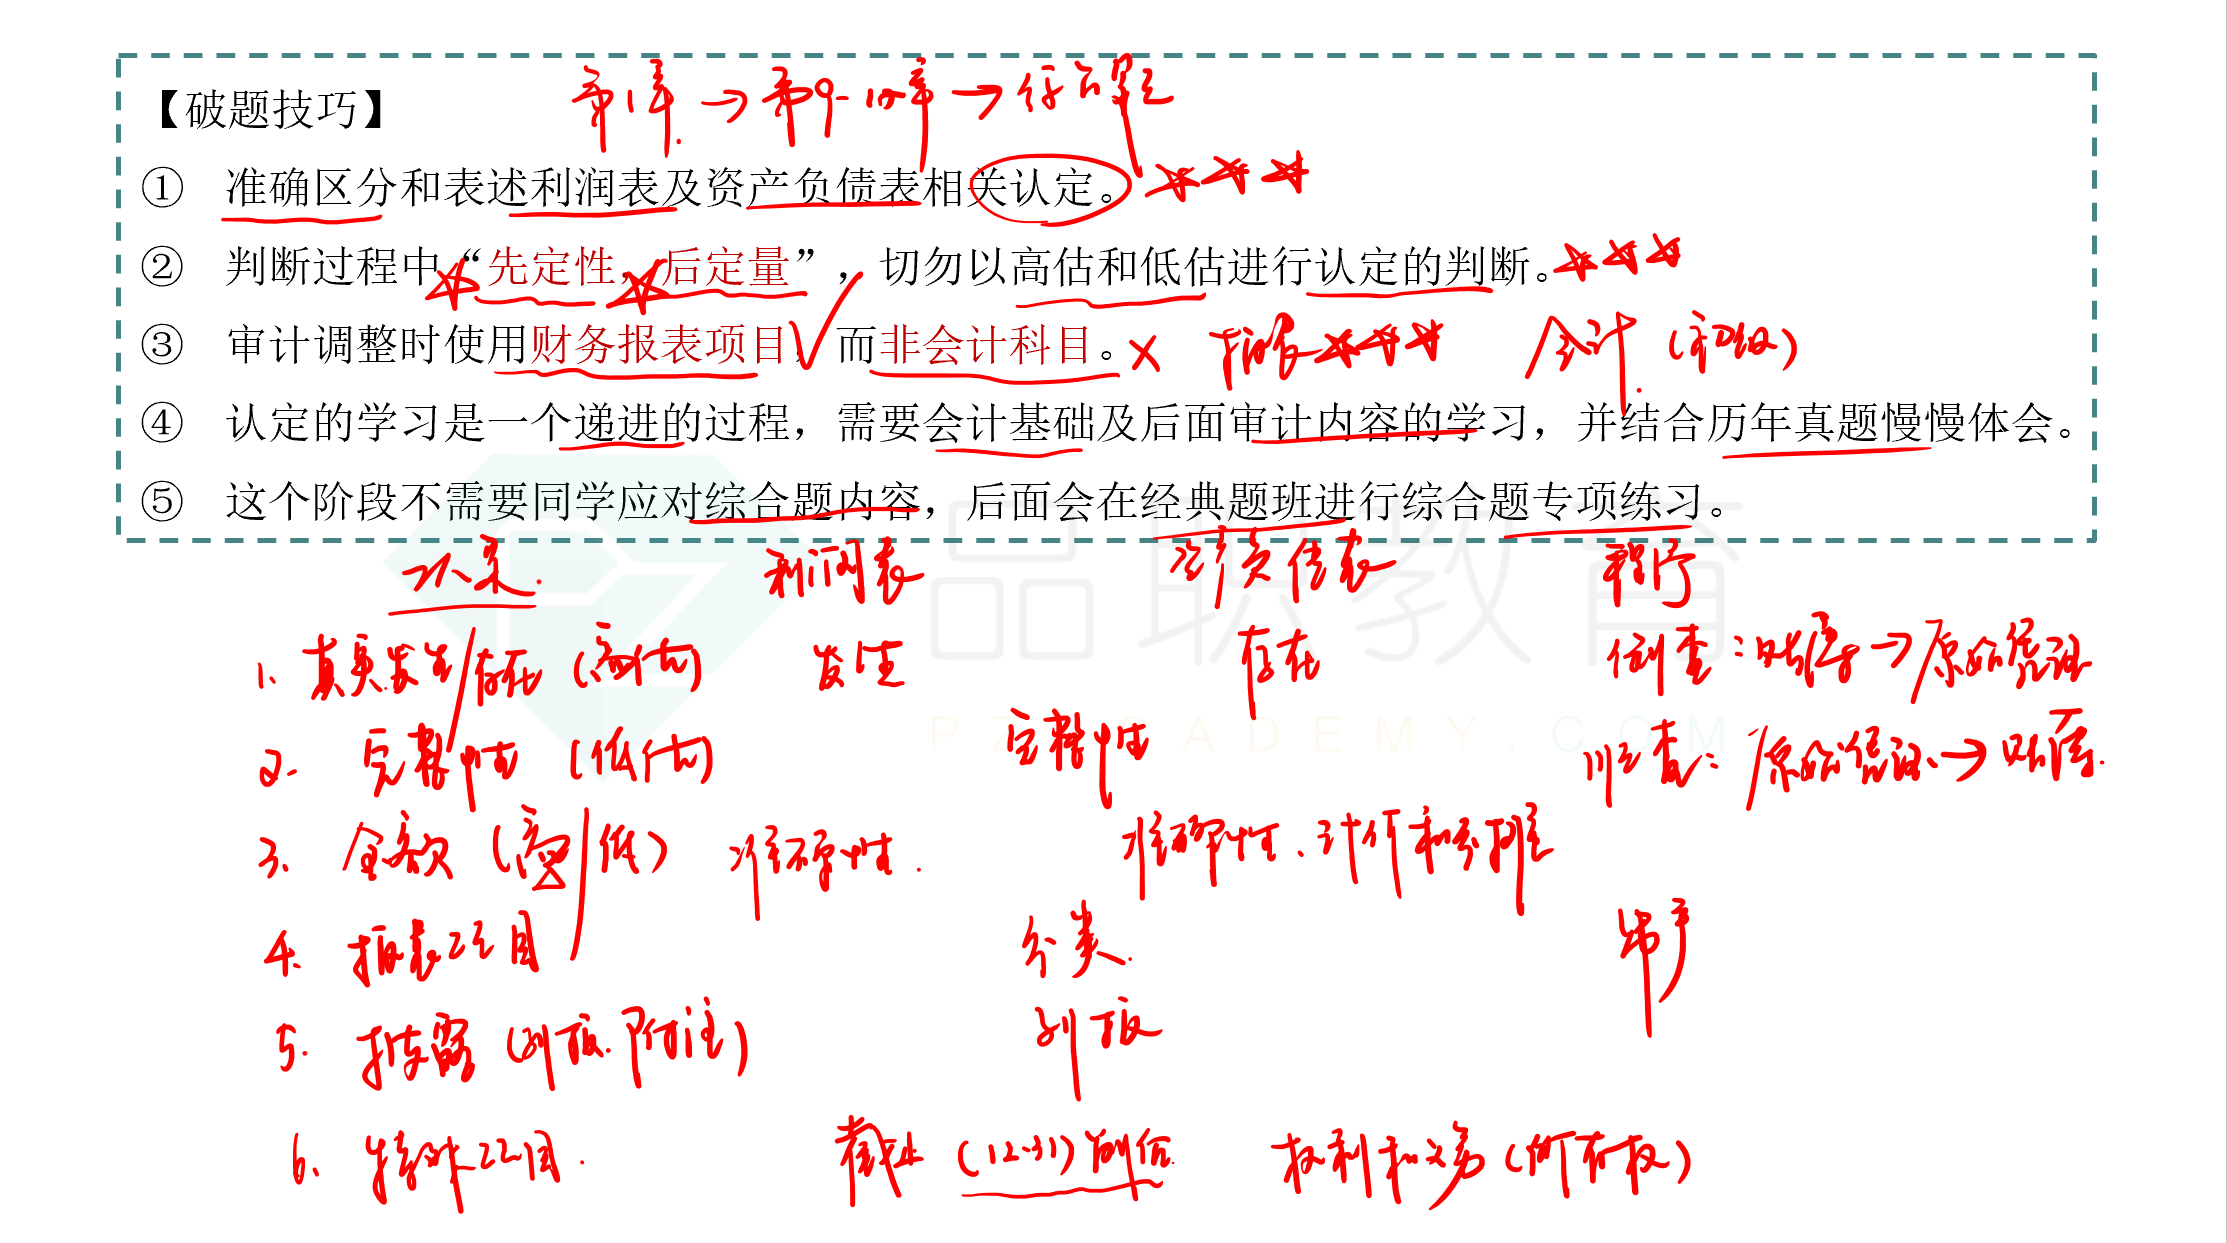 第1章 → 第9-12章 → 综合题
【破题技巧】
① 准确区分和表述利润表及资产负债表相关认定。
② 判断过程中“先定性，后定量”，切勿以高估和低估进行认定的判断。
③ 审计调整时使用财务报表项目，而非会计科目。× 报表 会计（初级）
④ 认定的学习是一个递进的过程，需要会计基础及后面审计内容的学习，并结合历年真题慢慢体会。
⑤ 这个阶段不需要同学应对综合题内容，后面会在经典题班进行综合题专项练习。
品职教育
PZACADEMY.COM
利润表 资产负债表 程序
1. 真实发生/存在（高估） 发生 存在 倒查：账簿→原始凭证
2. 完整性（低估） 完整性 顺查：原始凭证→账簿.
3. 金额（高/低） 准确性. 准确性、计价和分摊
4. 报表项目 分类.
5. 披露（列报.附注） 列报
6. 特殊项目. 截止（12.31） 权利和义务（所有权）